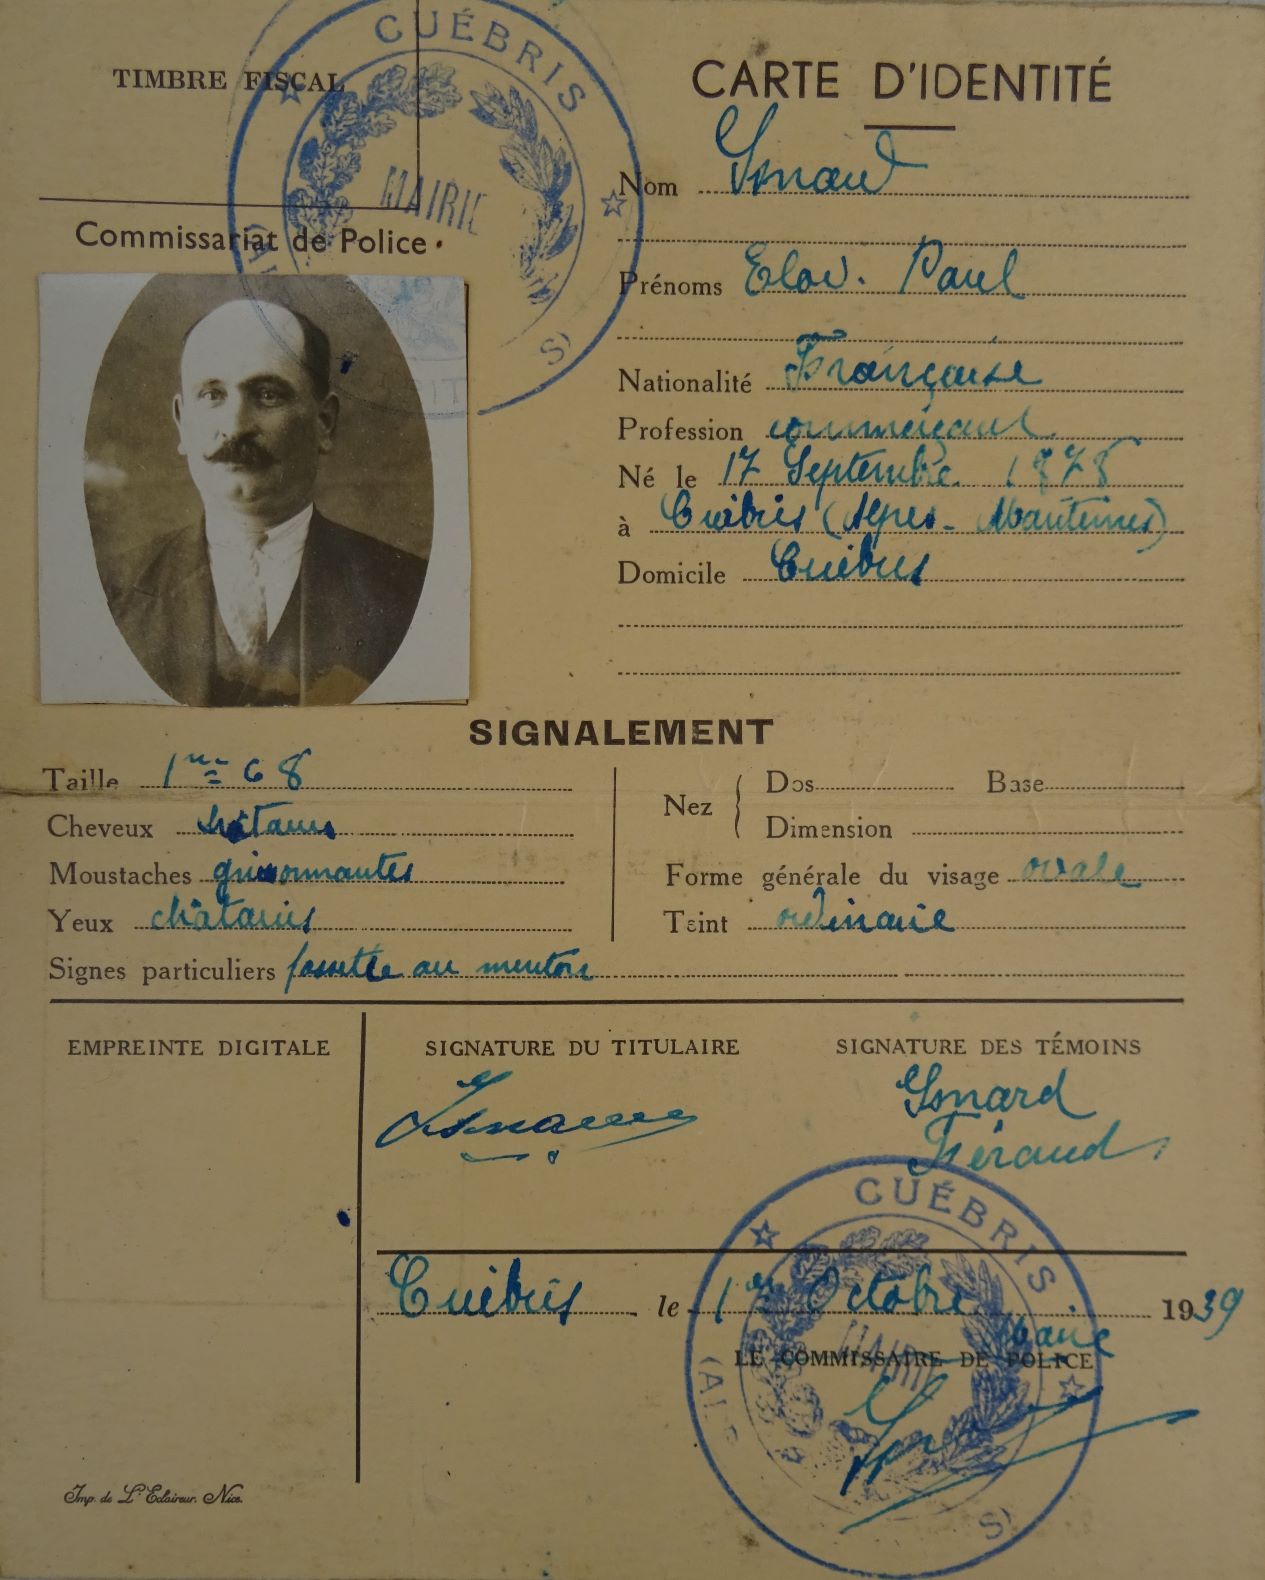 CUÉBRIS
MAIRIE
TIMBRE FISCAL
Commissariat de Police
CARTE D'IDENTITÉ
Nom Isnard
Prénoms Paul
Nationalité Française
Profession commerçant
Né le 17 Septembre 1878
à Cuébris (Alpes-Maritimes)
Domicile Cuébris
SIGNALEMENT
Taille 1m 68
Cheveux châtains
Moustaches grisonnantes
Yeux châtains
Signes particuliers fossette au menton
Nez { Dos Base
Dimension
Forme générale du visage ovale
Teint ordinaire
EMPREINTE DIGITALE
SIGNATURE DU TITULAIRE
Isnard
SIGNATURE DES TÉMOINS
Isnard
Féraud
Cuébris le 1er Octobre 1939
Maire
LE COMMISSAIRE DE POLICE
CUÉBRIS
MAIRIE
Imp. de L'Eclaireur. Nice.